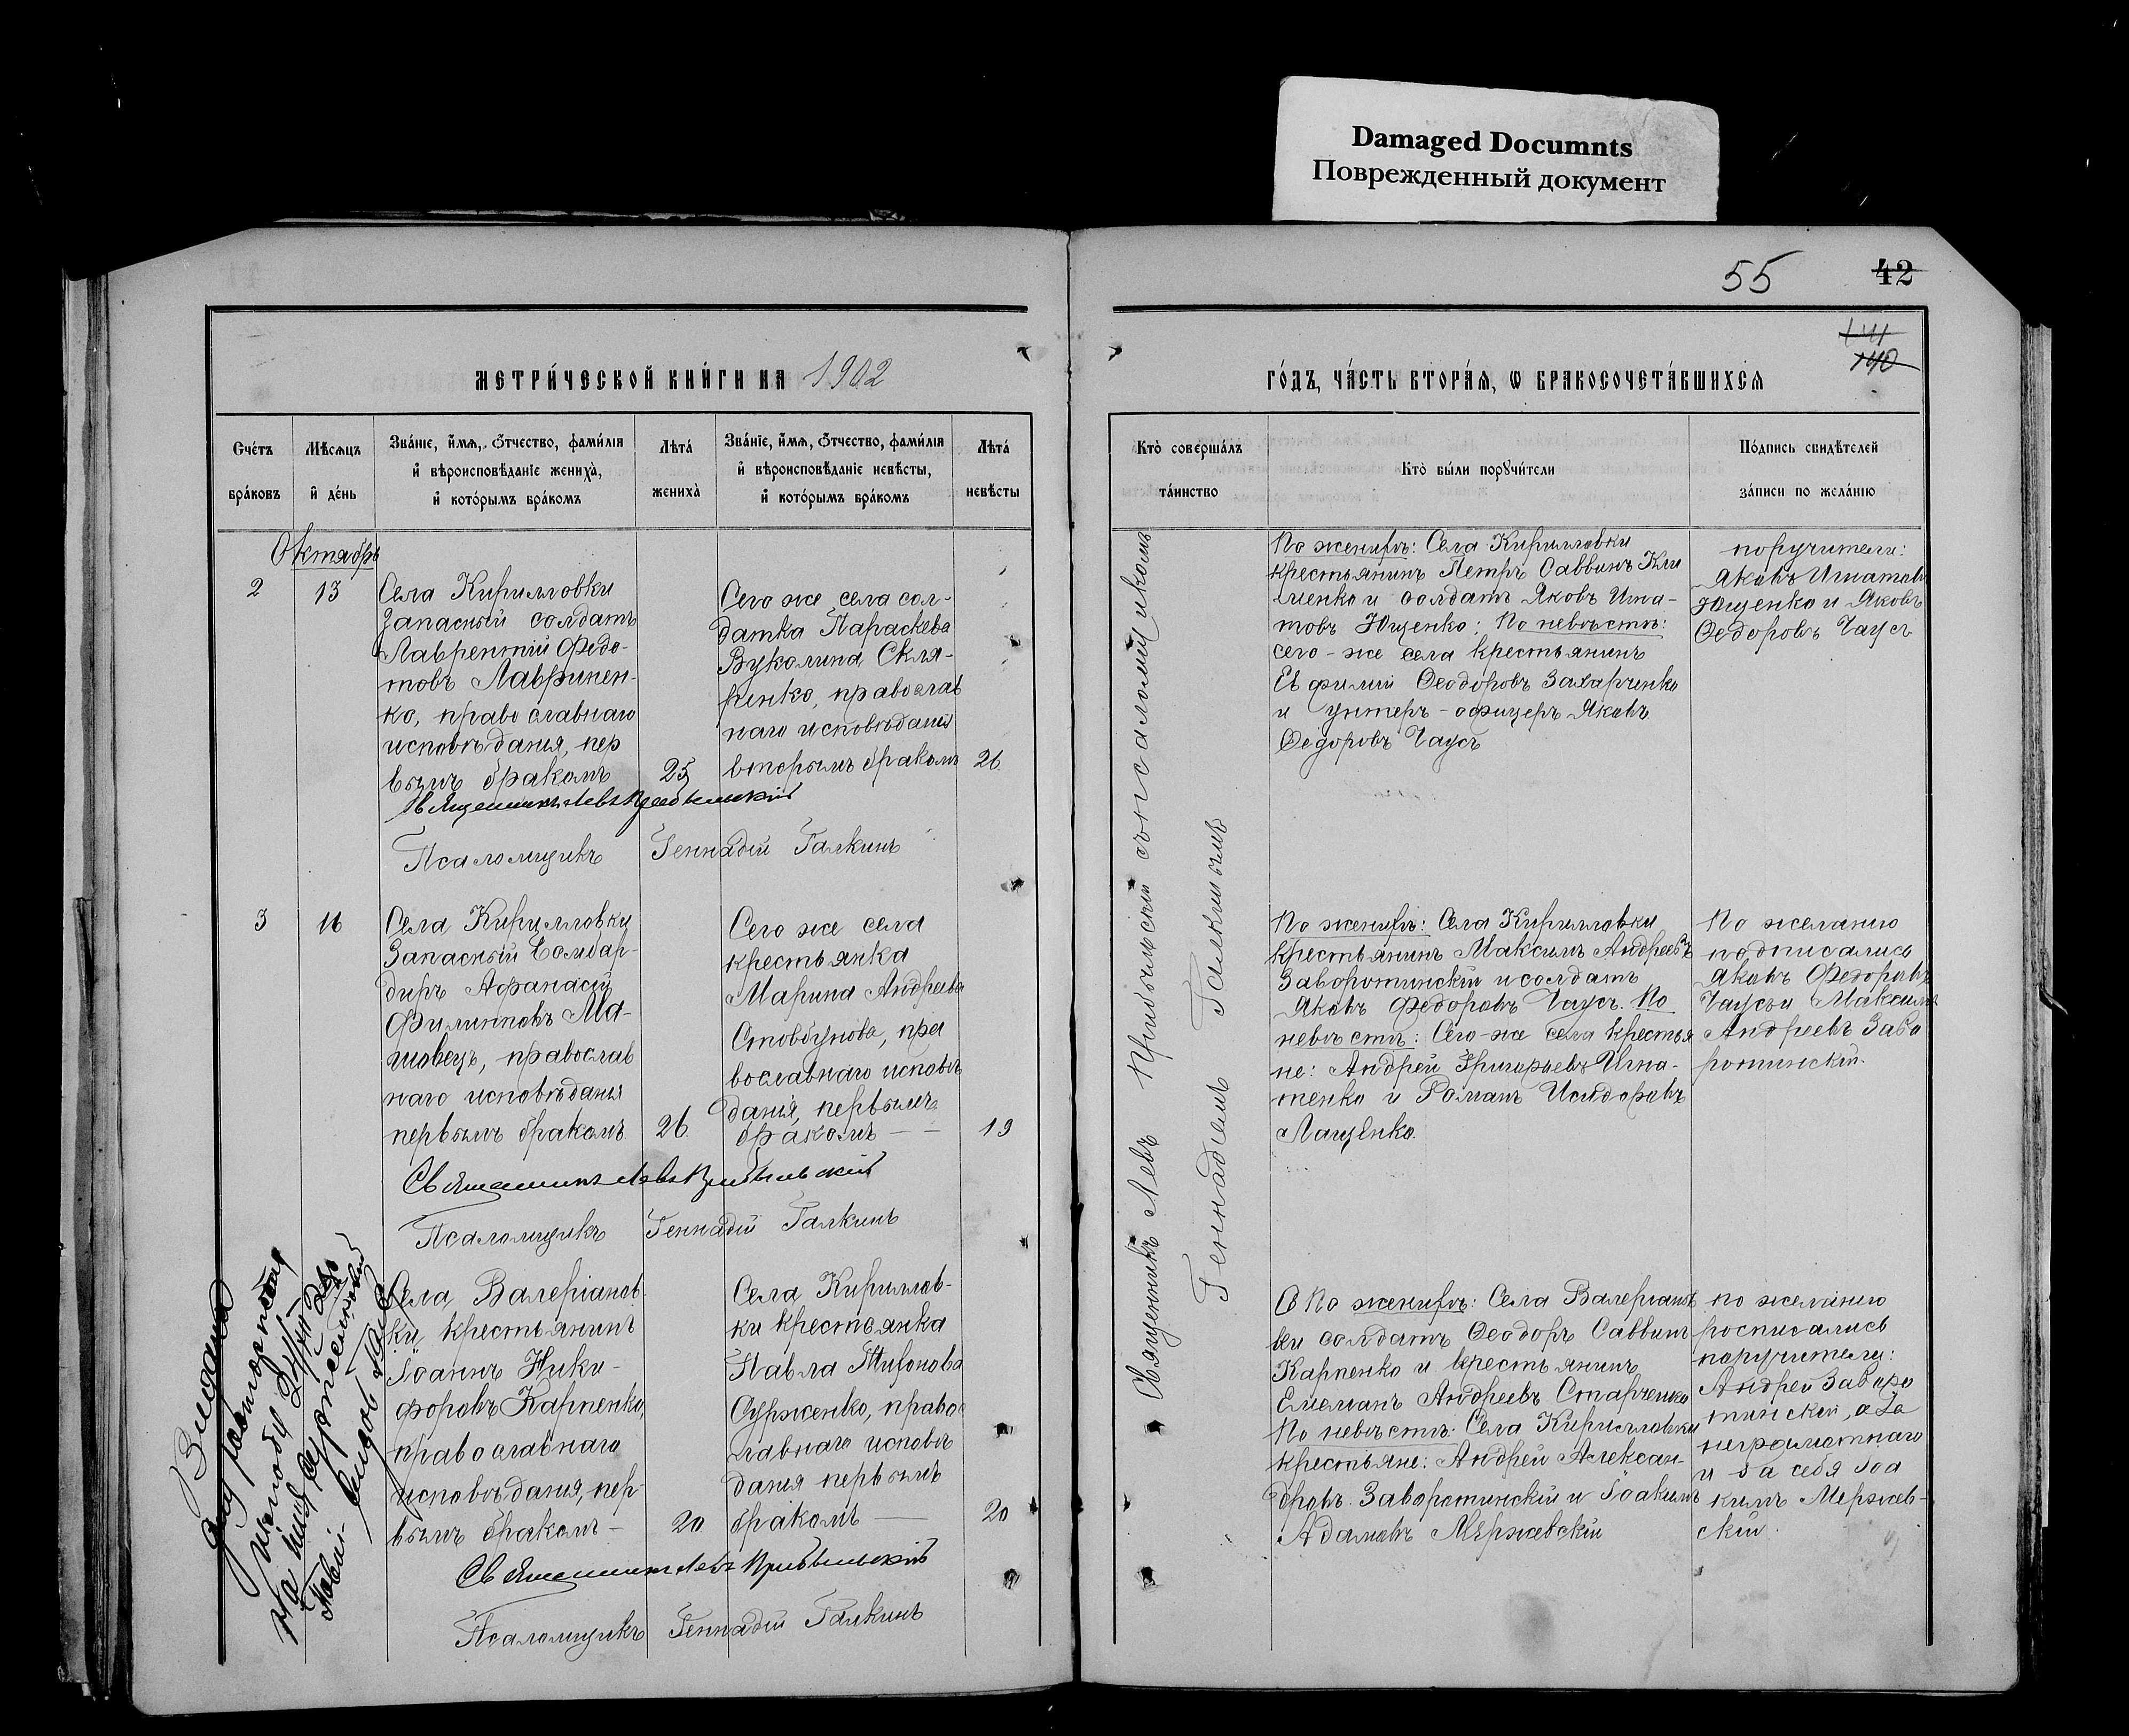 Damaged Documnts
Поврежденный документ
55 42
141
140
МЕТРИ́ЧЕСКОЙ КНИ́ГИ НА 1902
ГО́ДЪ, ЧА́СТЬ ВТОРА́Я, Ѡ БРАКОСОЧЕТА́ВШИХСЯ
Сче́тъ бра́ковъ
Мѣ́сѧцъ и҆ де́нь
Зва́нїе, и҆́мѧ, ѻ҆́тчество, фами́лїѧ
и҆ вѣроисповѣ́данїе жениха̀,
и҆ кото́рымъ бра́комъ
Лѣта̀ жениха̀
Зва́нїе, и҆́мѧ, ѻ҆́тчество, фами́лїѧ
и҆ вѣроисповѣ́данїе невѣ́сты,
и҆ кото́рымъ бра́комъ
Лѣта̀ невѣ́сты
Кто̀ соверша́лъ та́инство
Кто̀ бы́ли порꙋчи́тели
По́дпись свидѣ́телей за́писи по жела́нїю
Октябрь
2
13
Села Кирилловки
Запасный солдатъ
Лаврентій Ѳедо-
товъ Лавринен-
ко, православнаго
исповѣданія, пер
вымъ бракомъ
25
Сего же села сол-
датка Параскева
Вуколина Скля-
ренко, православ
наго исповѣданія
вторымъ бракомъ
26
Священникъ Левъ Прибыльскій
Псаломщикъ Геннадій Галкинъ
По женихѣ: Села Кирилловки
крестьянинъ Петръ Саввинъ Кли
менко и солдатъ Яковъ Игна-
товъ Ющенко; По невѣстѣ:
сего-же села крестьянинъ
Евфимій Ѳеодоровъ Захарченко
и унтеръ-офицеръ Яковъ
Ѳедоровъ Чаусъ
поручители:
Яковъ Игнатовъ
Ющенко и Яковъ
Ѳедоровъ Чаусъ
Священникъ Левъ Прибыльскій съ псаломщикомъ
Геннадіемъ Галкинымъ
3
16
Села Кирилловки
Запасный Бомбар-
диръ Афанасій
Филипповъ Ма-
шовецъ, православ
наго исповѣданія
первымъ бракомъ
26
Сего же села
крестьянка
Марина Андреева
Столбунова, пра
вославнаго исповѣ
данія, первымъ
бракомъ — —
19
Священникъ Левъ Прибыльскій
Псаломщикъ Геннадій Галкинъ
По женихѣ: Села Кирилловки
крестьянинъ Максимъ Андреевъ
Заворотинскій и солдатъ
Яковъ Ѳедоровъ Чаусъ. По
невѣстѣ: Сего-же села крестья
не: Андрей Григорьевъ Игна-
тенко и Романъ Исидоровъ
Лащенко.
По желанію
подписались
Яковъ Ѳедоровъ
Чаусъ и Максимъ
Андреевъ Заво
ротинскій.
Села Валеріанов-
ки, крестьянинъ
Іоаннъ Ники-
форовъ Карпенко,
православнаго
исповѣданія, пер-
вымъ бракомъ —
20
Села Кириллов-
ки крестьянка
Павла Тихонова
Сурженко, право
славнаго исповѣ
данія первымъ
бракомъ —
20
Священникъ Левъ Прибыльскій
Псаломщикъ Геннадій Галкинъ
По женихѣ: Села Валеріанов
ки солдатъ Ѳеодоръ Саввинъ
Карпенко и крестьянинъ
Емельянъ Андреевъ Старченко
По невѣстѣ: Села Кирилловки
крестьяне: Андрей Алексан-
дровъ Заворотинскій и Іоакимъ
Адамовъ Мержевскій
по желанію
росписались
поручители:
Андрей Заворо
тинскій, а за
неграмотнаго
и за себя Іоа
кимъ Мержев-
скій.